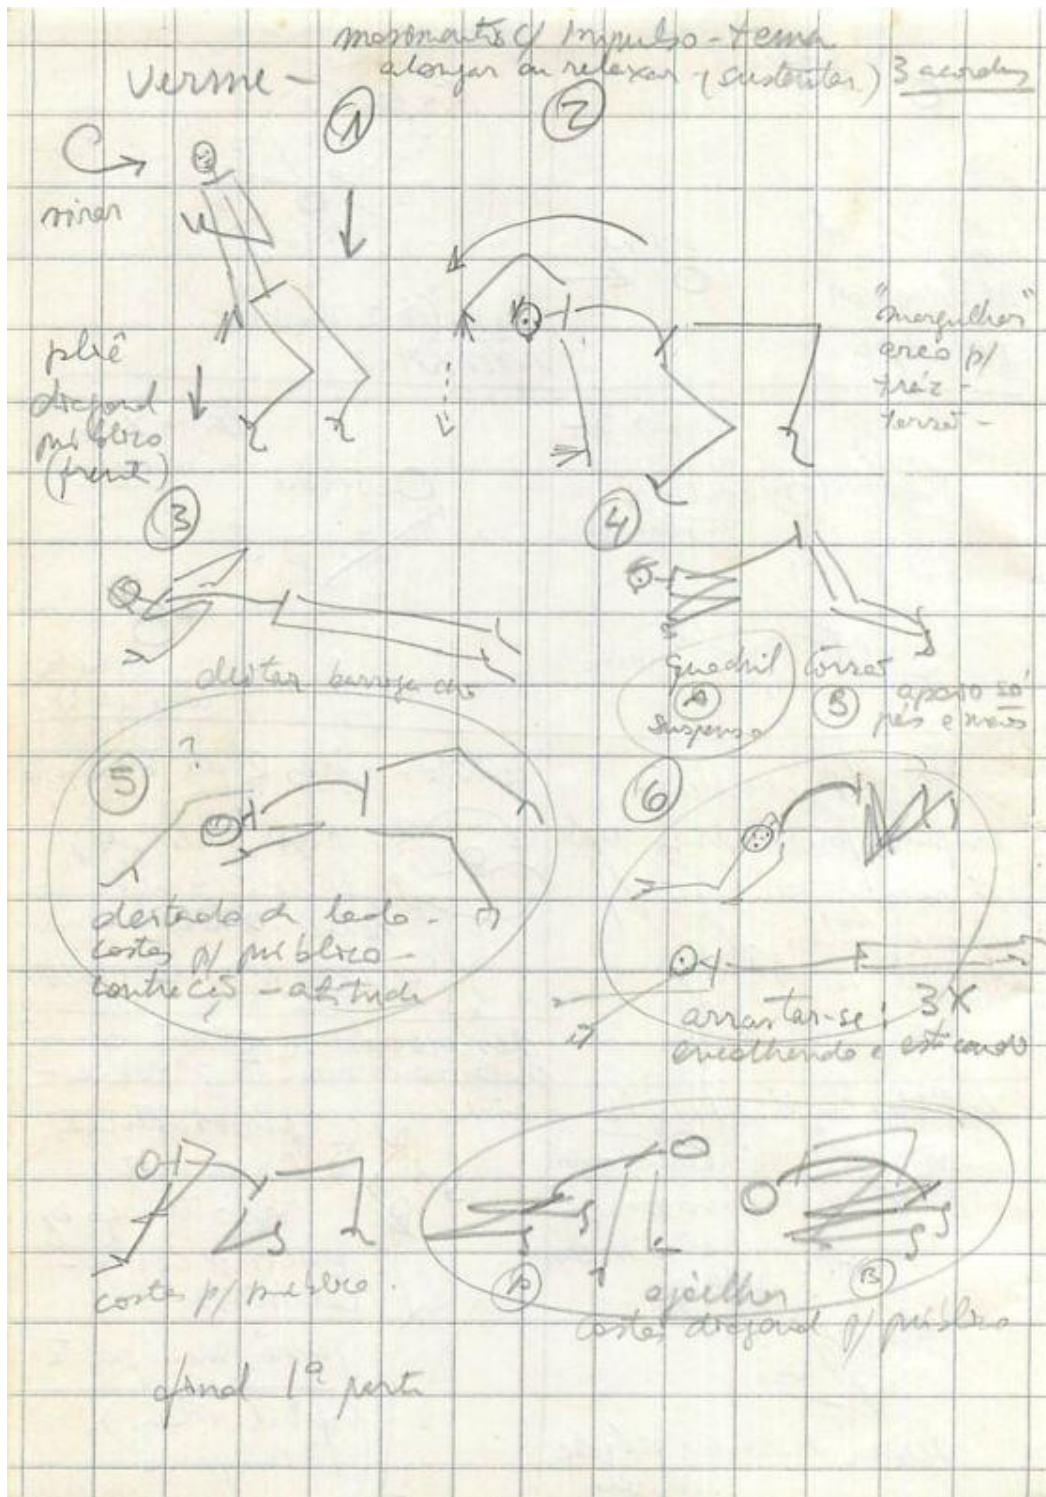 movimentos c/ impulso - tema
verme - alongar ou relaxar - (sustentar) 3 acordes
1
2
virar
pliê
diagonal
público
(frente)
"mergulhar"
arco p/
tráz -
torsão -
3
4
deitar barriga chão
quadril
A
suspenso
torsão
B
apoio só
pés e mãos
5
?
6
deitado de lado -
costas p/ público -
contração - atitude
arrastar-se: 3X
encolhendo e esticando
costas p/ público.
A
B
ajoelhar
costas diagonal p/ público
final 1ª parte